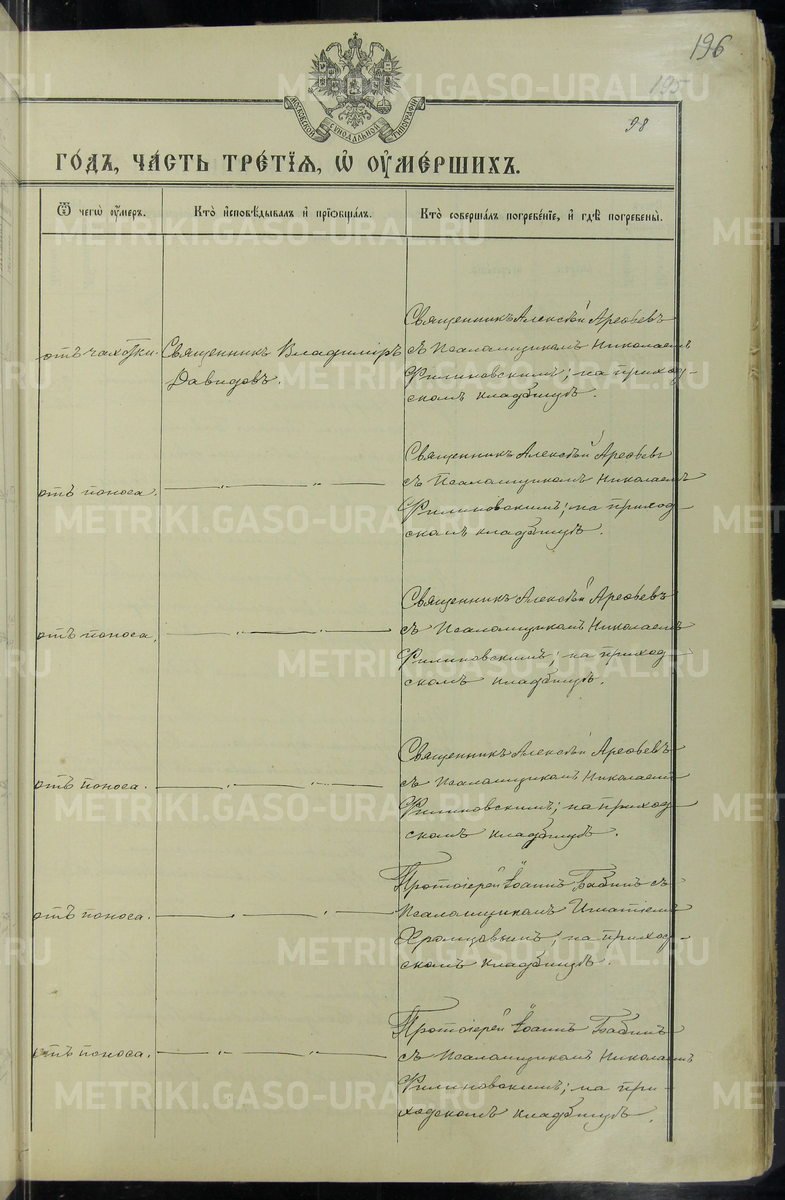 196
195
98
МОСКОВСКОЙ СѴНОДАЛЬНОЙ ТИПОГРАФІИ
ГО́ДЪ, ЧА́СТЬ ТРЕ́ТІЯ, Ѽ ОУ҆МЕ́РШИХЪ.
Ѿ чегѡ̀ ᲂу҆́меръ.
Кто̀ и҆сповѣ́дывалъ и҆ прїѻбща́лъ.
Кто̀ соверша́лъ погребе́нїе, и҆ гдѣ̀ погребены̀.
отъ чахотки.
Священникъ Владиміръ
Давидовъ.
Священникъ Алексѣй Арефьевъ
съ Псаломщикомъ Николаемъ
Филиновскимъ; на приход-
скомъ кладбищѣ.
отъ поноса.
— „ — „ —
Священникъ Алексѣй Арефьевъ
съ Псаломщикомъ Николаемъ
Филиновскимъ; на приход-
скомъ кладбищѣ.
отъ поноса.
— „ — „ —
Священникъ Алексѣй Арефьевъ
съ Псаломщикомъ Николаемъ
Филиновскимъ; на приход-
скомъ кладбищѣ.
отъ поноса.
— „ — „ —
Священникъ Алексѣй Арефьевъ
съ Псаломщикомъ Николаемъ
Филиновскимъ; на приход-
скомъ кладбищѣ.
отъ поноса.
— „ — „ —
Протоіерей Іоаннъ Бабинъ съ
Псаломщикомъ Игнатіемъ
Хромцовымъ; на приход-
скомъ кладбищѣ.
отъ поноса.
— „ — „ —
Протоіерей Іоаннъ Бабинъ
съ Псаломщикомъ Николаемъ
Филиновскимъ; на при-
ходскомъ кладбищѣ.
METRIKI.GASO-URAL.RU